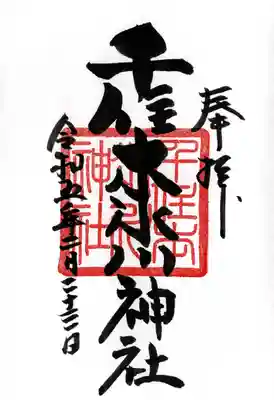 奉拝
千住本氷川神社
令和五年二月
千住本
氷川
神社